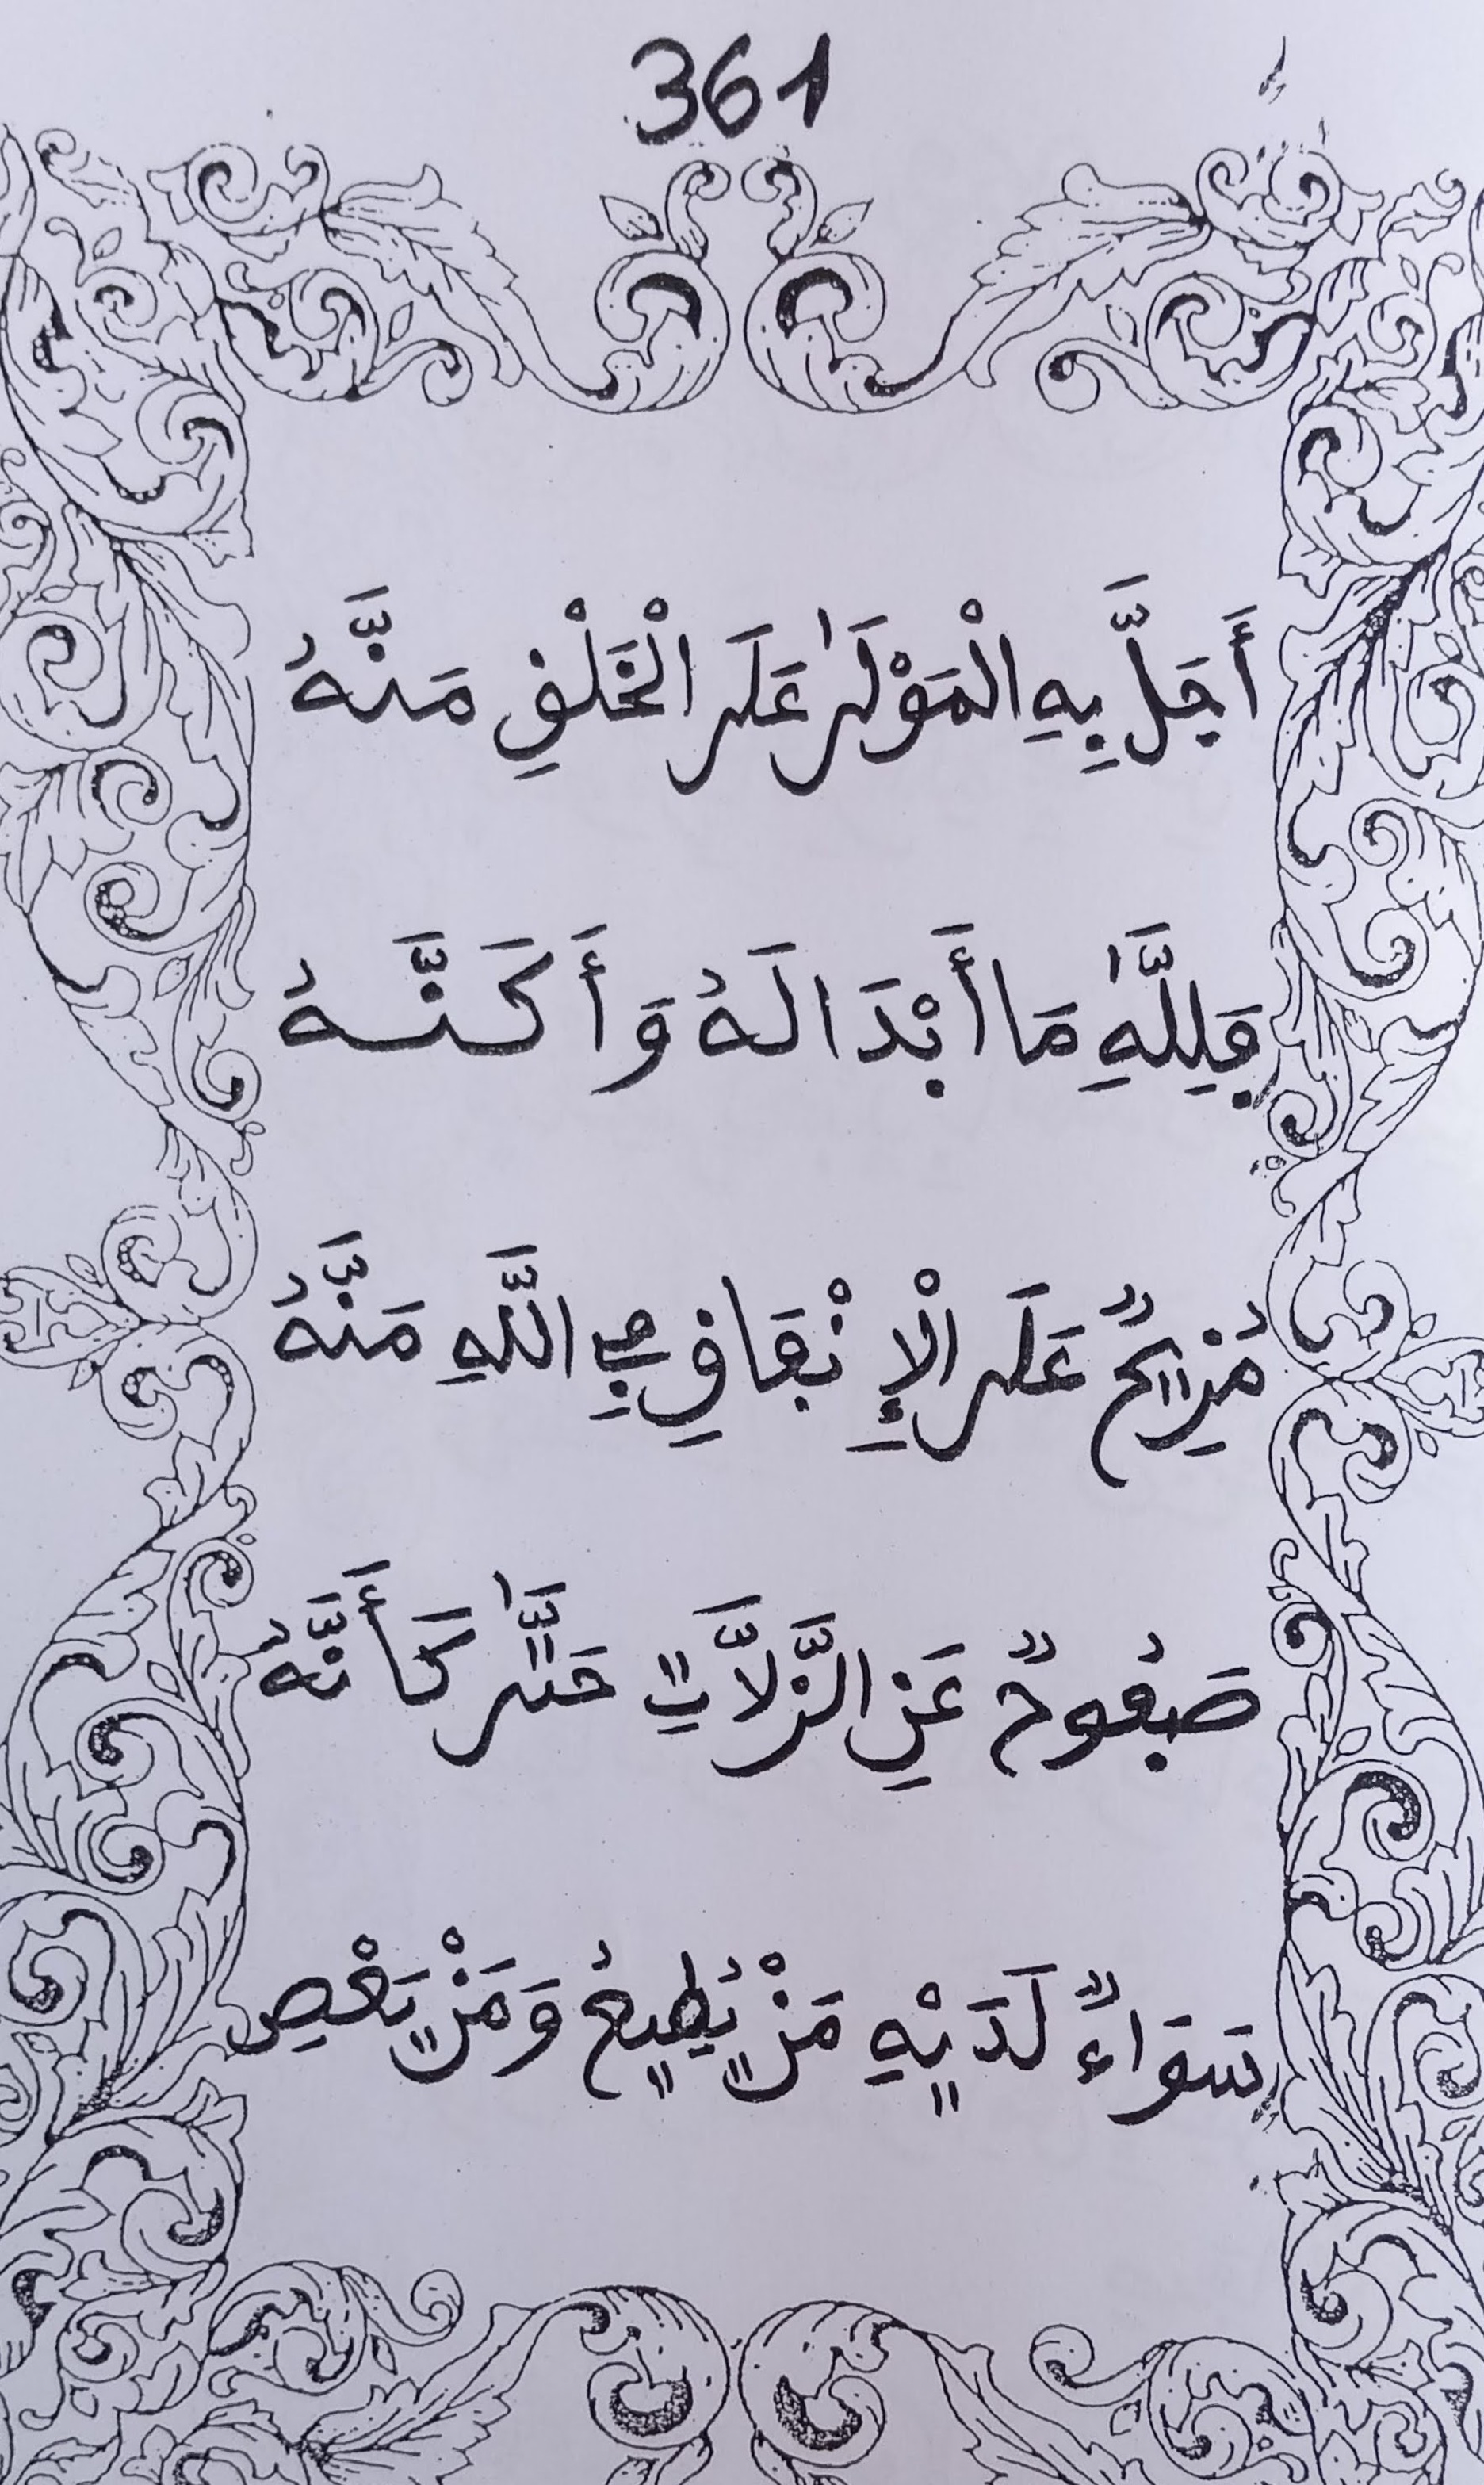 361
أَجَلَّ بِهِ الْمَوْلَىٰ عَلَى الْخَلْقِ مَنَّهُ
فَلِلَّهِ مَا أَبْدَا لَهُ وَأَكَنَّهُ
مُزِيحٌ عَلَى الْإِنْفَاقِ فِي اللَّهِ مَنَّهُ
صَفُوحٌ عَنِ الزَّلَّاتِ حَتَّىٰ كَأَنَّهُ
سَوَاءٌ لَدَيْهِ مَنْ يُطِيعُ وَمَنْ يَعْصِ